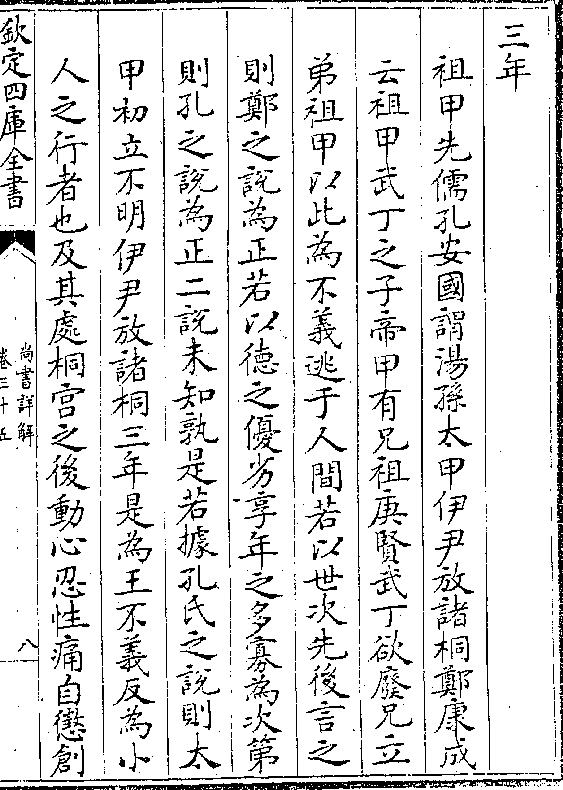 三年
祖甲先儒孔安國謂湯孫太甲伊尹放諸桐鄭康成
云祖甲武丁之子帝甲有兄祖庚賢武丁欲廢兄立
弟祖甲以此為不義逃于人間若以世次先後言之
則鄭之說為正若以德之優劣享年之多寡為次第
則孔之說為正二說未知孰是若據孔氏之說則太
甲初立不明伊尹放諸桐三年是為王不義反為小
人之行者也及其處桐宮之後動心忍性痛自懲創
欽定四庫全書
尚書詳解
卷三十五
八